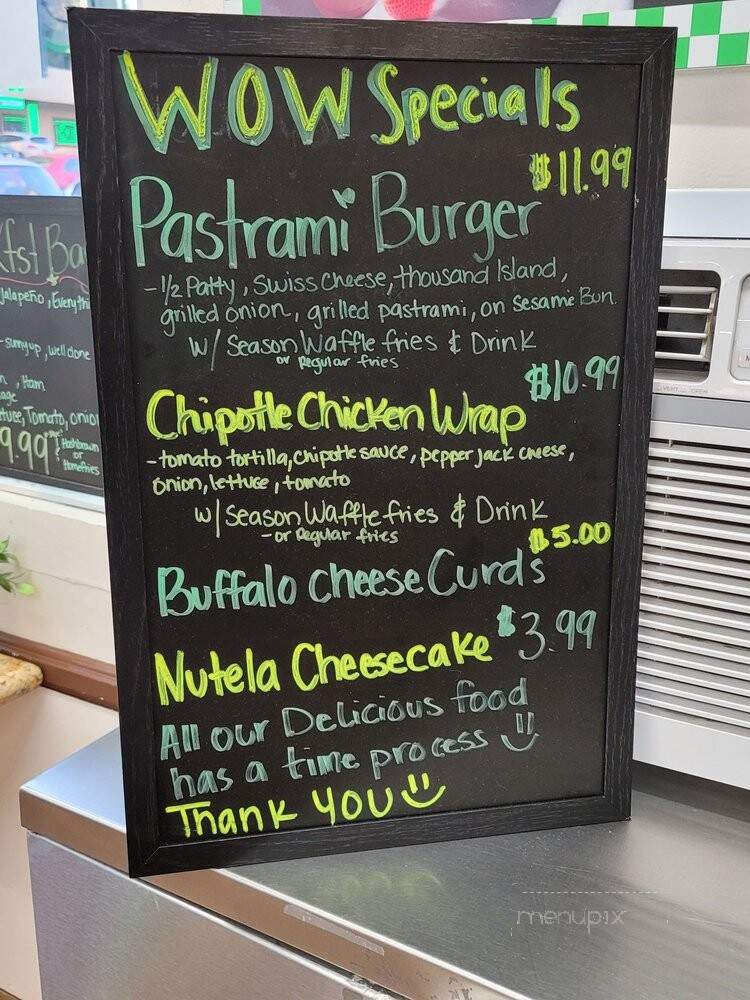 WOW Specials
$11.99
Pastrami Burger
-1/2 Patty, Swiss cheese, thousand Island,
grilled onion, grilled pastrami, on sesame Bun.
w/ Season Waffle fries & Drink
or Regular fries
$10.99
Chipotle Chicken Wrap
-tomato tortilla, chipotle sauce, pepper jack cheese,
onion, lettuce, tomato
w/ Season Waffle fries & Drink
-or Regular fries
$5.00
Buffalo cheese Curds
Nutela Cheesecake $3.99
All our Delicious food
has a time process
Thank YOU
fst Ba
Jalapeño, Everythi
-sunny up, well done
, Ham
Tomato, onion
9.99
Hashbrown
or
Homefries
menupix